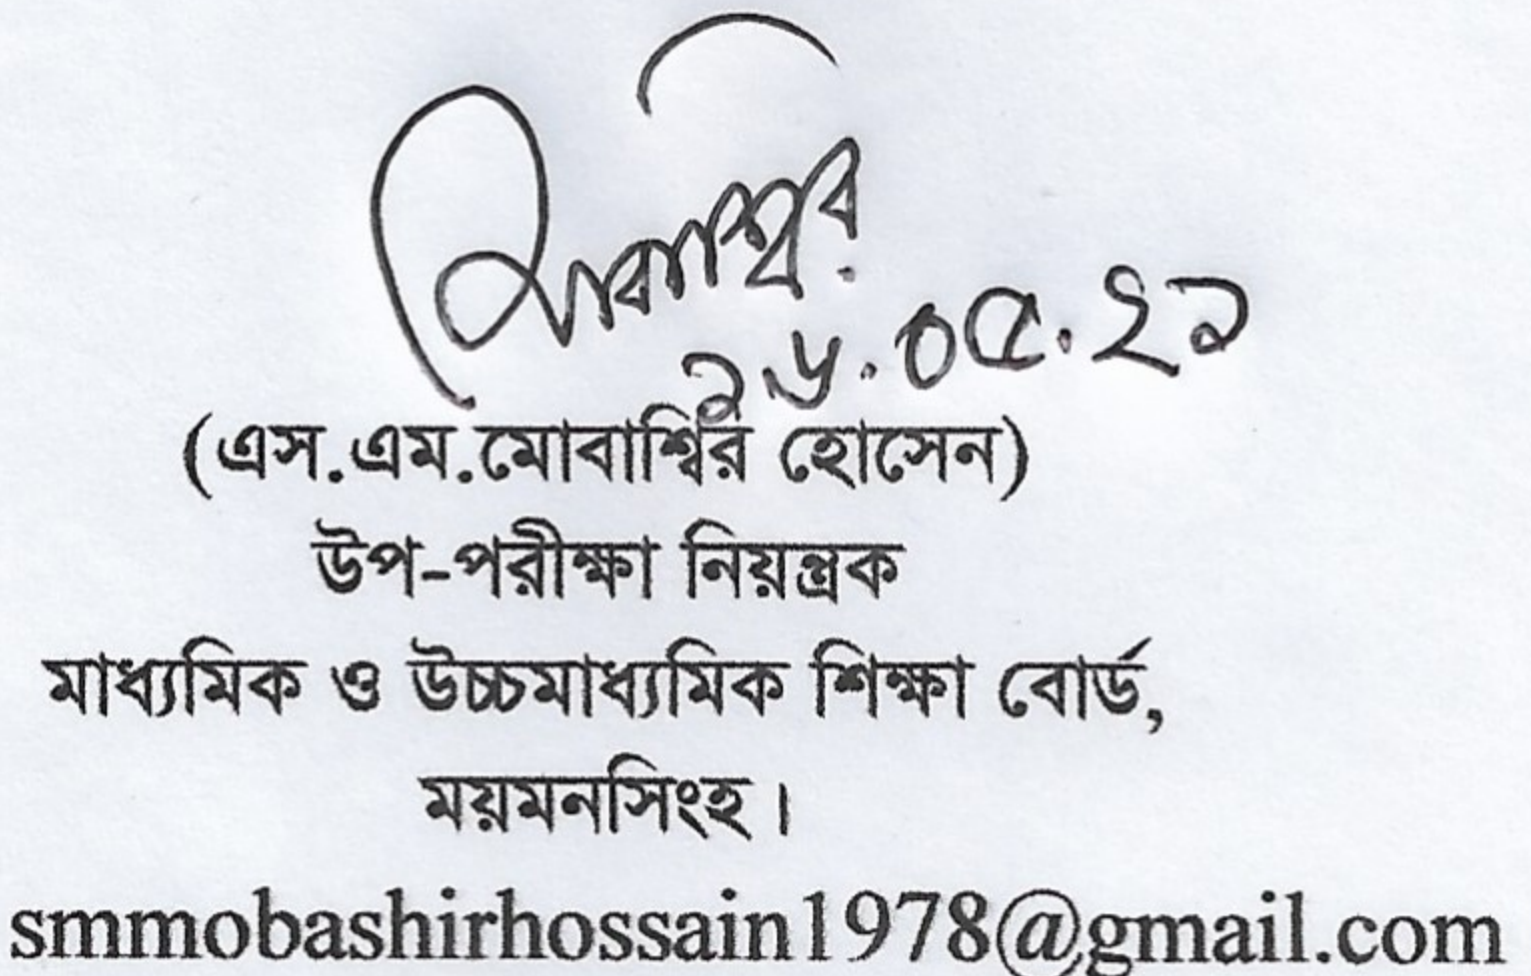 মোবাশ্বির
১৬.০৫.২১
(এস.এম.মোবাশ্বির হোসেন)
উপ-পরীক্ষা নিয়ন্ত্রক
মাধ্যমিক ও উচ্চমাধ্যমিক শিক্ষা বোর্ড,
ময়মনসিংহ।
smmobashirhossain1978@gmail.com